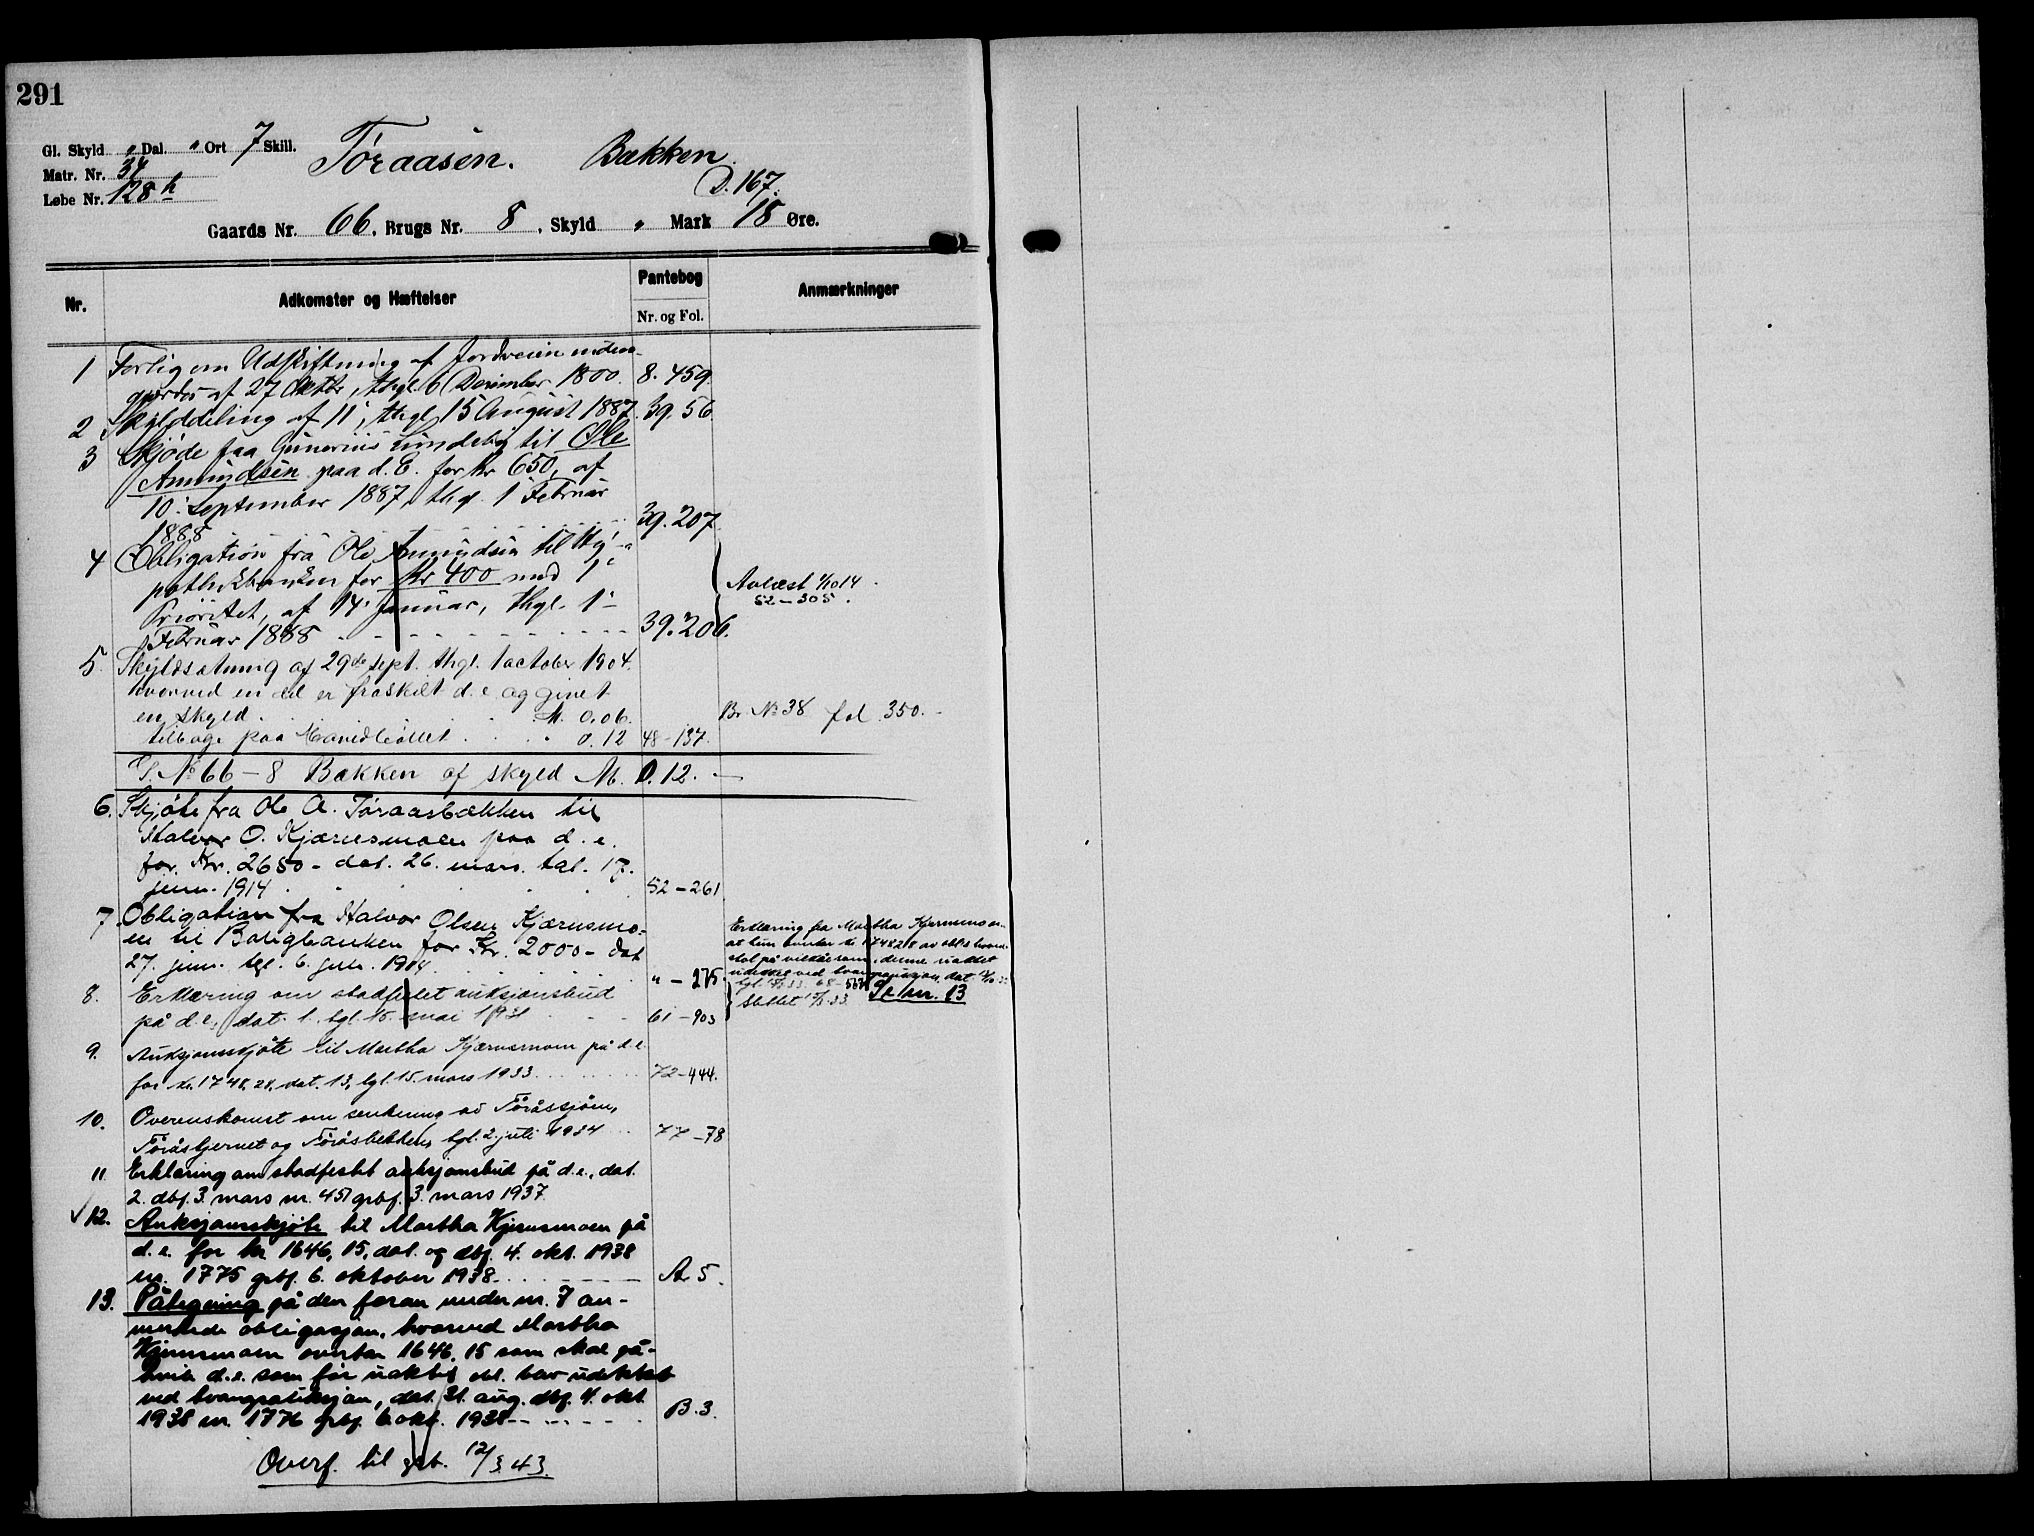 291
Gl. Skyld „ Dal. „ Ort 7 Skill.
Matr. Nr. 34
Løbe Nr. 128 h
Tøraasen. Bækken.
D. 167.
Gaards Nr. 66, Brugs Nr. 8, Skyld „ Mark 18 Øre.
Nr.
Adkomster og Hæftelser
Pantebog
Nr. og Fol.
Anmærkninger
1 Forlig om Udskiftning af Jordveien
af 27 Oktbr, thgl. 6 December 1800. 8. 459
2 Skylddeling af 11, thgl 15 August 1887. 39. 56
3 Skjøde fra Gunerius til Ole
Amundsen paa d. E. for Kr 650, af
10. September 1887, thgl. 1 Februar
1888 39. 207
4 Obligation fra Ole Amundsen til Hy-
pothekbanken for Kr 400 med 1
Prioritet, af 14. Januar, thgl. 1
Februar 1888 39. 206.
Avlæst 1/10 14.
52 – 305.
5. Skyldsætning af 29de sept. thgl. 1 october 1904.
hvorved en del er fraskilt d. e. og givet
en skyld M. 0.06. Br. No 38 fol. 350.
tilbage paa Hovedbøllet „ 0.12 48 – 137.
G. No 66 – 8 Bækken af skyld M. 0.12. —
6. Skjøte fra Ole A. Tøraasbækken til
Halvor O. Kjærnsmoen paa d. e.
for Kr. 2650 – dat. 26. mars. tgl. 17.
juni. 1914 52 – 261
7 Obligation fra Halvor Olsen Kjærnsmo-
en til Boligbanken for Kr. 2000 – dat
27. juni. tgl. 6. juli. 1914. „ – 275
Erklæring fra Martha Kjernsmoen
at hun overtar kr 1748.28 av obl.s hoved-
stol på vilkår som , denne uaktet
udekket ved tvangsauksjon, dat.
Slettet 15/3 33. Se nr. 13
8. Erklæring om stadfestet auksjonsbud
på d. e., dat. 1. tgl. 15. mai 1931 61 – 903
9. Auksjonsskjøte til Martha Kjærnsmoen på d. e.
for kr. 1748,28, dat. 13, tgl. 15. mars 1933 72 – 444.
10. Overenskomst om senkning av Tøråssjøen,
Tøråstjernet og Tøråsbekken, tgl. 2. juli 1934 77 – 78
11 Erklæring om stadfestet auksjonsbud på d. e., dat.
2. dbf. 3. mars nr. 457 grbf. 3. mars 1937.
12. Auksjonsskjøte til Martha Kjernsmoen på
d. e. for kr 1646,15, dat. og dbf. 4. okt. 1938
nr. 1775 grbf. 6. oktober 1938 A 5.
13. Påtegning på den foran under nr. 7 an-
merkede obligasjon, hvorved Martha
Kjernsmoen overtar 1646,15 som skal på-
hvile d. e. som før uaktet obl. blev udekket
ved tvangsauksjon, dat. 31. aug. dbf. 4. okt.
1938 nr 1776 grbf. 6 okt. 1938 B. 3.
Overf. til grb. 12/3 43.